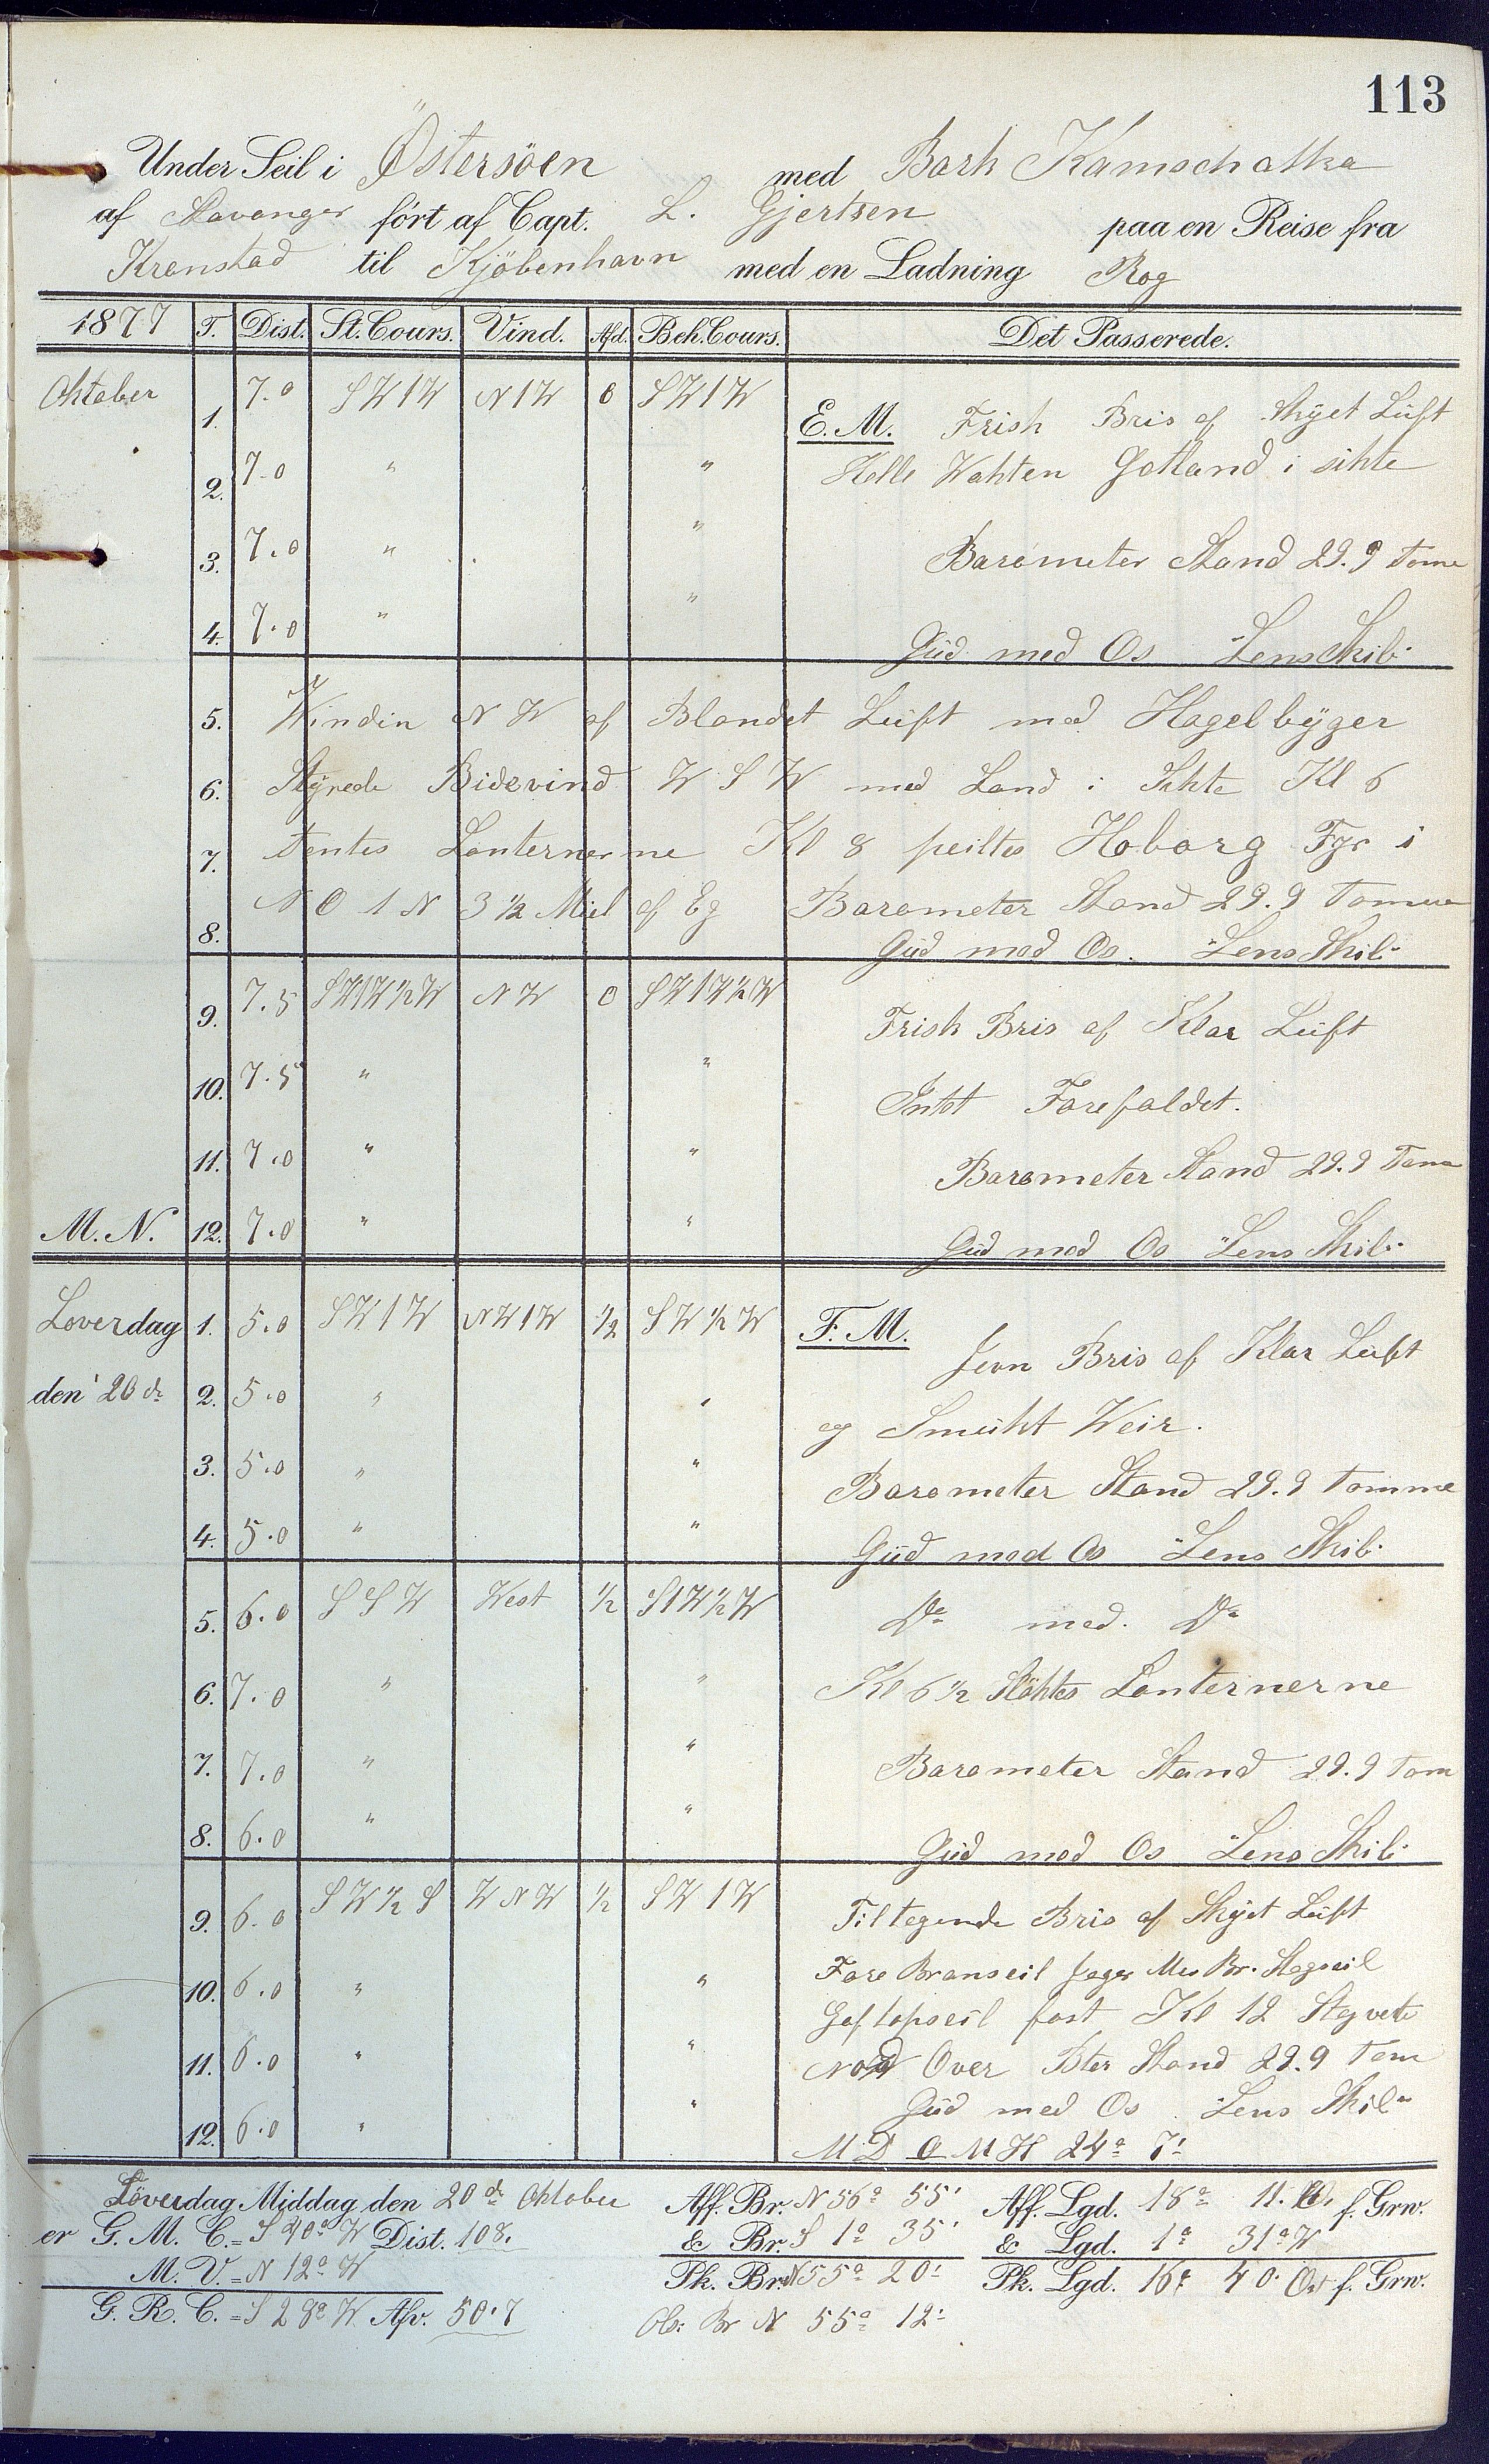 113
Under Seil i Östersöen med Bark Kamschatka
af Stavanger fört af Capt. L. Gjertsen paa en Reise fra
Kronstad til Kjöbenhavn med en Ladning Rog
1877 T. Dist. St. Cours. Vind. Afd. Beh. Cours. Det Passerede.
Oktober 1. 7.0 SW1W N1W 0 SW1W E. M. Frisk Bris af Skyet Lüft
2. 7.0 " " Hele Wakten Gotland i sikte
3. 7.0 " " Barometer Stand 29.9 Tome
4. 7.0 " " Güd med Os "Lens Skib"
5. Windin NW af Blandet Lüft med Hagelbÿger
6. Stÿrede Bidevind W S W med Land i Sikte Kl 6
7. tentes Lanternerne Kl 8 peiltes Hoborg Fyr i
8. N O 1 N 3 1/2 Miil af Eg Barometer Stand 29.9 Tomme
Güd med Os. "Lens Skib"
9. 7.5 SW1W1/2W NW 0 SW1W1/2W Frisk Bris af Klar Lüft
10. 7.5 " " Intet Forefaldet.
11. 7.0 " " Barometer Stand 29.9 Tome
M. N. 12. 7.0 " " Güd med Os "Lens Skib"
Loverdag 1. 5.0 SW1W NW1W 1/2 SW1/2W F. M. Jevn Bris af Klar Lüft
den 20de 2. 5.0 " " og Smükt Weir.
3. 5.0 " " Barometer Stand 29.9 Tomme
4. 5.0 " " Güd med Os "Lens Skib"
5. 6.0 SSW West 1/2 S1W1/2W Do med. Do
6. 7.0 " " Kl 6 1/2 Slöktes Lanternerne
7. 7.0 " " Barometer Stand 29.9 Tom
8. 6.0 " " Güd med Os "Lens Skib"
9. 6.0 SW1/2S WNW 1/2 SW1W Tiltagende Bris af Skÿet Lüft
10. 6.0 " " Fore Bramseil Jager Mes Br. Stagseil
Gaftopseil fast Kl 12 Stagvete
11. 6.0 " " Nord Over Bter Stand 29.9 Tom
12. 6.0 " " Güd med Os "Lens Skib"
M D O M H 24° 7'
Löverdag Middag den 20de Oktober Aff. Br. N 56° 55' Aff. Lgd. 18° 11. O. f. Grw.
er G. M. C. = S 40° W Dist. 108. & Br. S 1° 35' & Lgd. 1° 31° W
M. V. = N 12° W Pk. Br. N 55° 20' Pk. Lgd. 16° 40' Ost f. Grw.
G. R. C. = S 28° W Afv. 50'7 Obs: Br N 55° 12'